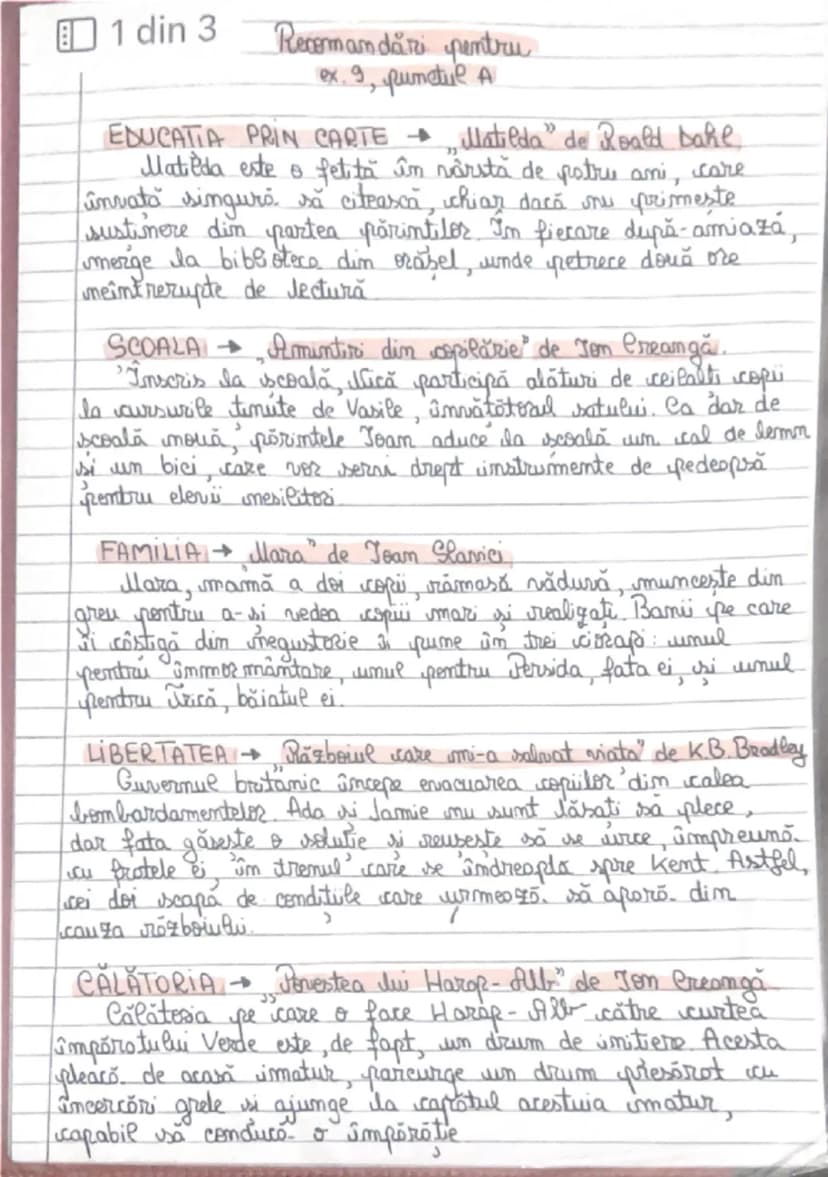 1 din 3
Recomandări pentru
ex. 9, punctul A
EDUCAȚIA PRIN CARTE → „Matilda” de Roald Dahl
Matilda este o fetiță în vârstă de patru ani, care
învață singură să citească, chiar dacă nu primește
susținere din partea părinților. În fiecare după-amiază,
merge la biblioteca din orășel, unde petrece două ore
neîntrerupte de lectură.
ȘCOALA → „Amintiri din copilărie” de Ion Creangă.
Înscris la școală, Nică participă alături de ceilalți copii
la cursurile ținute de Vasile, învățătorul satului. Ca dar de
școală nouă, părintele Ioan aduce la școală un cal de lemn
și un bici, care vor servi drept instrumente de pedeapsă
pentru elevii nesilitori.
FAMILIA → „Mara” de Ioan Slavici
Mara, mamă a doi copii, rămasă văduvă, muncește din
greu pentru a-și vedea copiii mari și realizați. Banii pe care
îi câștigă din negustorie îi pune în trei ciorapi: unul
pentru înmormântare, unul pentru Persida, fata ei, și unul
pentru Trică, băiatul ei.
LIBERTATEA → „Războiul care mi-a salvat viața” de K.B. Bradley
Guvernul britanic începe evacuarea copiilor din calea
bombardamentelor. Ada și Jamie nu sunt lăsați să plece,
dar fata găsește o soluție și reușește să se urce, împreună
cu fratele ei, în trenul care se îndreapta spre Kent. Astfel,
cei doi scapă de condițiile care urmează să apară din
cauza războiului.
CĂLĂTORIA → „Povestea lui Harap-Alb” de Ion Creangă
Călătoria pe care o face Harap-Alb către curtea
împăratului Verde este, de fapt, un drum de inițiere. Acesta
pleacă de acasă imatur, parcurge un drum presărat cu
încercări grele și ajunge la capătul acestuia matur,
capabil să conducă o împărăție